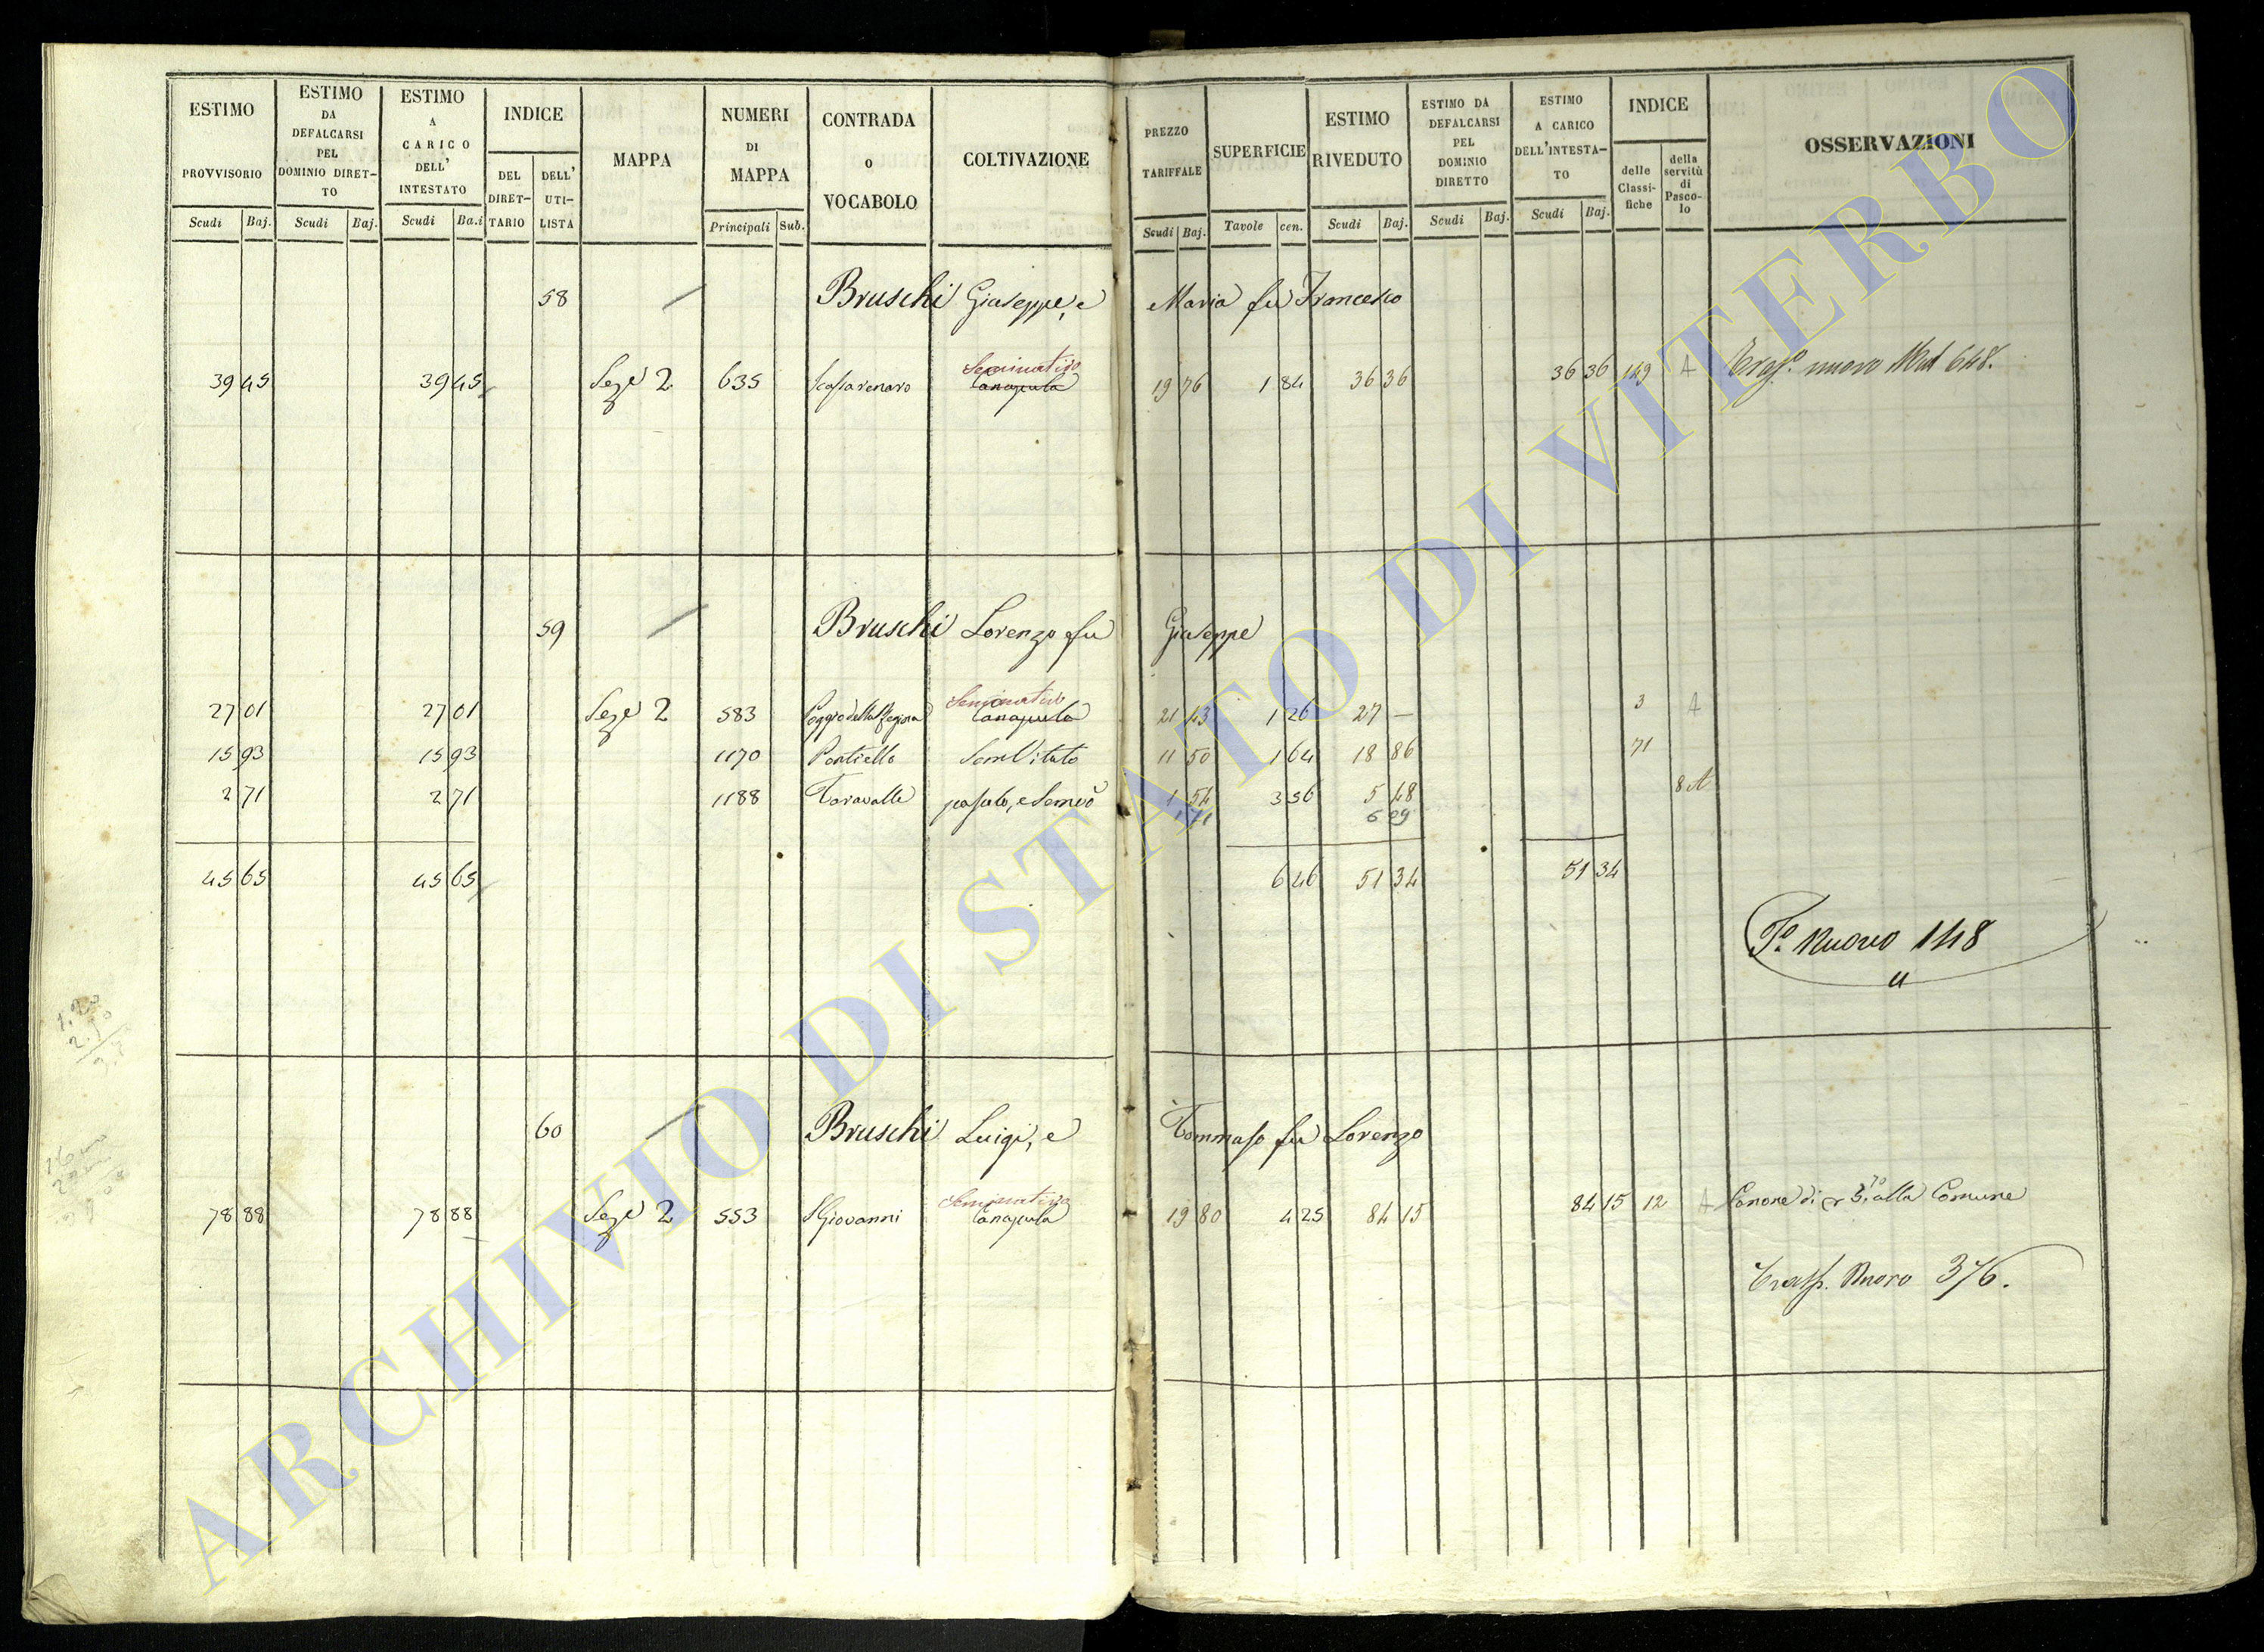 ESTIMO PROVVISORIO Scudi Baj.
ESTIMO DA DEFALCARSI PEL DOMINIO DIRET-TO Scudi Baj.
ESTIMO A CARICO DELL' INTESTATO Scudi Ba.i
INDICE DEL DIRET-TARIO DELL' UTI-LISTA
MAPPA
NUMERI DI MAPPA Principali Sub.
CONTRADA O VOCABOLO
COLTIVAZIONE
PREZZO TARIFFALE Scudi Baj.
SUPERFICIE Tavole cen.
ESTIMO RIVEDUTO Scudi Baj.
ESTIMO DA DEFALCARSI PEL DOMINIO DIRETTO Scudi Baj.
ESTIMO A CARICO DELL'INTESTA-TO Scudi Baj.
INDICE delle Classi-fiche della servitù di Pasco-lo
OSSERVAZIONI
58 Bruschi Giuseppe, e Maria fu Francesco
Seminativo
39 45 39 45 Seze 2 635 Canapula 19 76 1 84 36 36 36 36 149 A nuovo 648.
59 Bruschi Lorenzo fu Giuseppe
Seminativo
27 01 27 01 Seze 2 583 Poggio della Regina Canapula 21 43 1 26 27 — 3 A
15 93 15 93 1170 Pontiello Sem Vitato 11 50 1 64 18 86 71
2 71 2 71 1188 Taravalle pascolo, e Semvo 1 54 3 56 5 48 8 A
1 71 6 09
45 65 45 65 6 46 51 34 51 34
To Nuovo 148
60 Bruschi Luigi, e Tommaso fu Lorenzo
Seminativo
78 88 78 88 Seze 2 553 S Giovanni Canapula 19 80 4 25 84 15 84 15 12 A Canone di alla Comune
Trasp. Nuovo 376.
ARCHIVIO DI STATO DI VITERBO